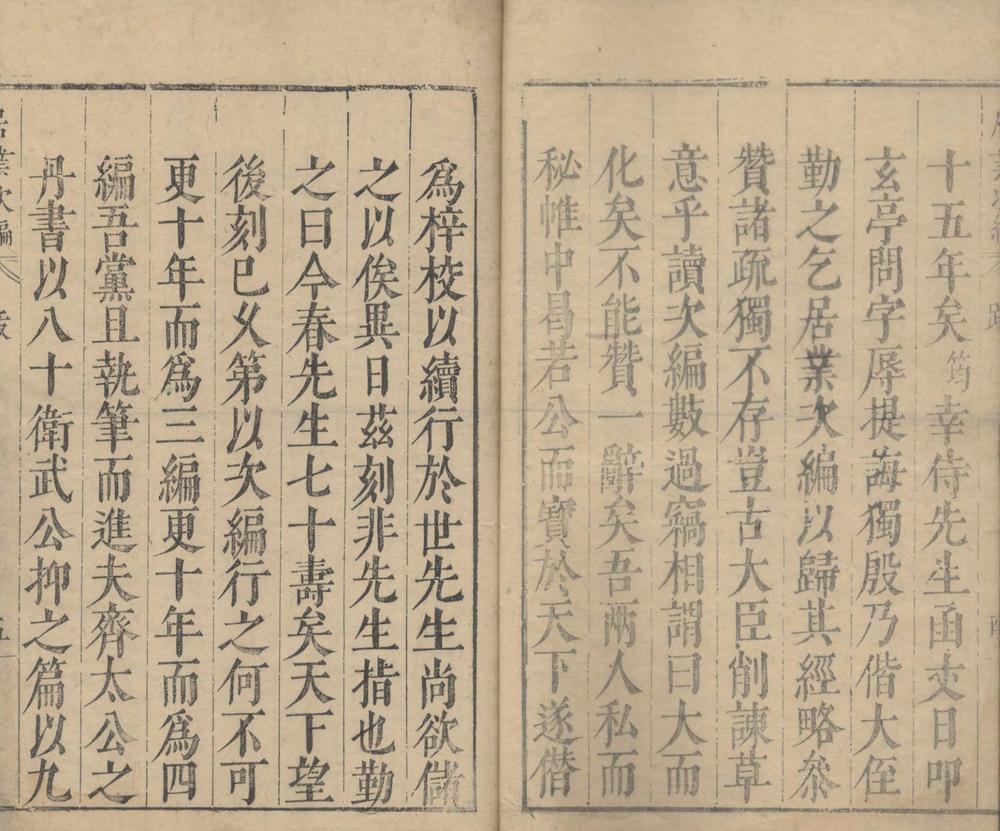 十五年矣筠幸侍先生函丈日叩
玄亭問字辱提誨獨殷乃偕大侄
勤之乞居業次編以歸其經略叅
贊諸疏獨不存豈古大臣削諫草
意乎讀次編數過竊相謂曰大而
化矣不能贊一辭矣吾兩人私而
秘帷中曷若公而寶於天下遂僭
為梓校以續行於世先生尚欲讎
之以俟異日茲刻非先生指也勤
之曰今春先生七十壽矣天下望
後刻已乆第以次編行之何不可
更十年而為三編更十年而為四
編吾黨且執筆而進夫齊太公之
丹書以八十衛武公抑之篇以九
居業次編
跋
五